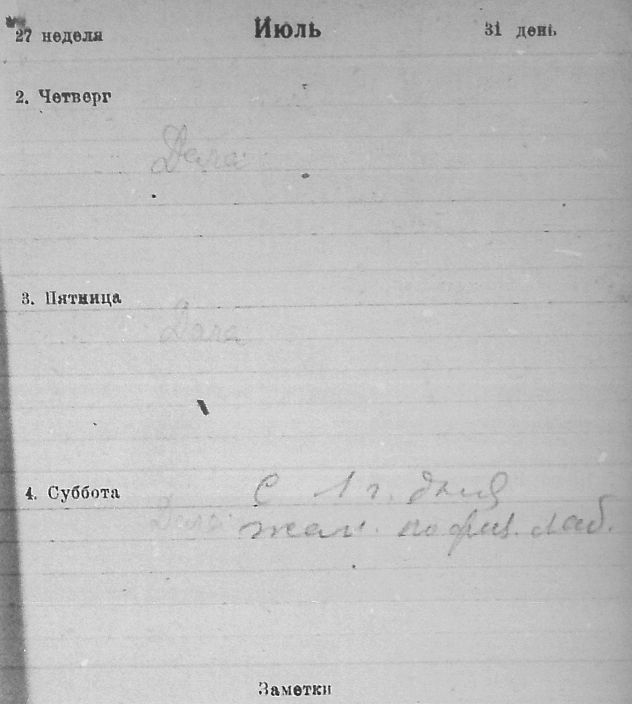 27 неделя Июль 31 день
2. Четверг
Дача
3. Пятница
Дача
4. Суббота С 1 г. дня
Дача экз. по физ. лаб.
Заметки